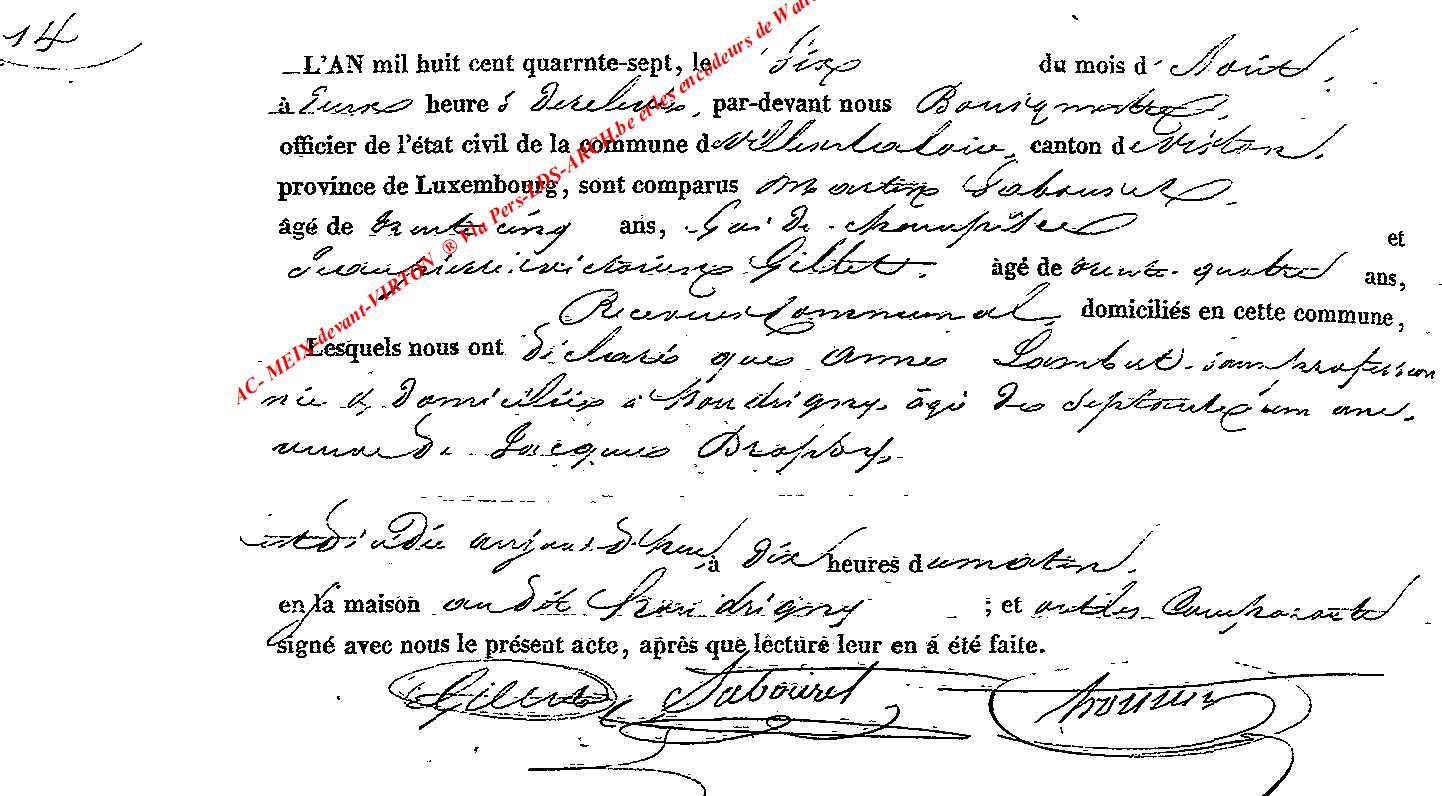 14
L'AN mil huit cent quarrnte-sept, le six du mois d' Août,
à heure par-devant nous Bourgmestre,
officier de l'état civil de la commune de Villers la loue, canton de Virton,
province de Luxembourg, sont comparus Martin Sabouret
âgé de trente cinq ans, Garde champêtre et
Jean pierre victorien Gillet, âgé de trente quatre ans,
Receveur Communal, domiciliés en cette commune,
Lesquels nous ont déclaré que anne Lambert sans profession
née & Domiciliée à houdrigny, âgé de septante un ans,
veuve de Jacques
est décédée aujourd'hui à dix heures du matin,
en la maison audit houdrigny ; et ont les Comparants
signé avec nous le présent acte, après que lecture leur en a été faite.
Gillet Sabouret
AC- MEIX-devant-VIRTON ® Via Pers-LDS-ARCH.be et les encodeurs de